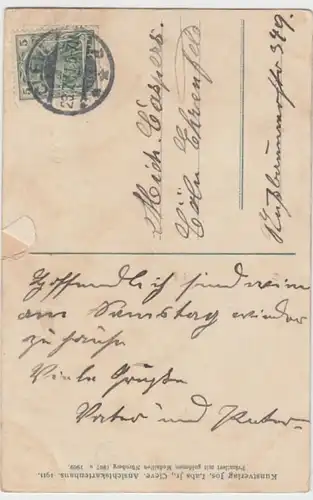 5 5
CLEVE
Mich. Caspers.
Cöln Ehrenfeld
Nußbaumerstr 379.
Hoffendlich sind wir
am Samstag wieder
zu hause
Viele Grüße
Vater und
Kunstverlag Jos. Labs jr., Cleve. Ansichtskartenhaus. 1911.
Prämiiert mit goldenen Medaillen Nürnberg 1907 u. 1909.